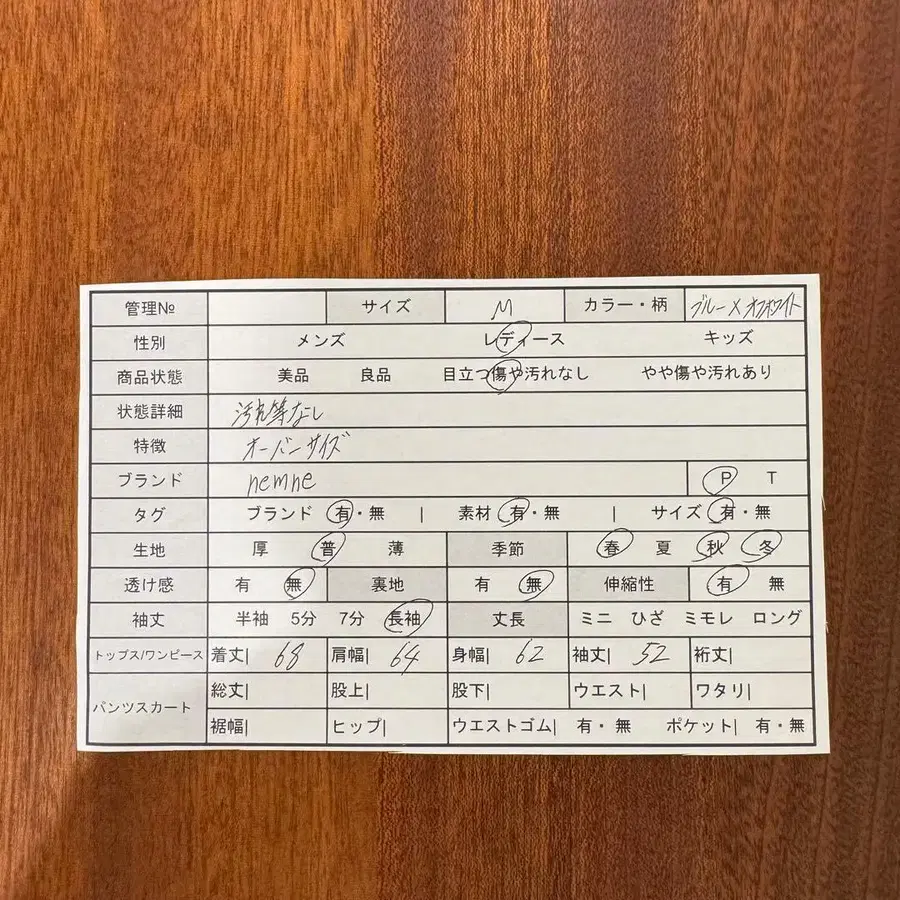 管理№ サイズ M カラー・柄 ブルー×オフホワイト
性別 メンズ レディース キッズ
商品状態 美品 良品 目立つ傷や汚れなし やや傷や汚れあり
状態詳細 汚れ等なし
特徴 オーバーサイズ
ブランド nemne P T
タグ ブランド 有・無 | 素材 有・無 | サイズ 有・無
生地 厚 普 薄 季節 春 夏 秋 冬
透け感 有 無 裏地 有 無 伸縮性 有 無
袖丈 半袖 5分 7分 長袖 丈長 ミニ ひざ ミモレ ロング
トップス/ワンピース 着丈| 68 肩幅| 64 身幅| 62 袖丈| 52 裄丈|
パンツスカート 総丈| 股上| 股下| ウエスト| ワタリ|
裾幅| ヒップ| ウエストゴム| 有・無 ポケット| 有・無